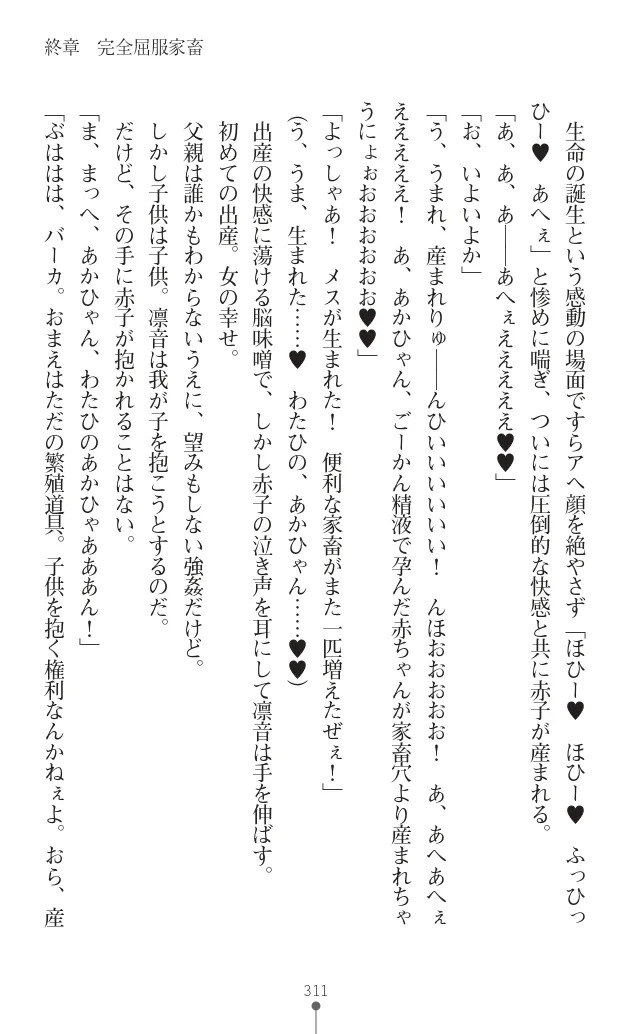 終章　完全屈服家畜
　生命の誕生という感動の場面ですらアヘ顔を絶やさず「ほひー♥　ほひー♥　ふっひっ
ひー♥　あへぇ」と惨めに喘ぎ、ついには圧倒的な快感と共に赤子が産まれる。
「あ、あ、あ――あへぇえええええ♥♥」
「お、いよいよか」
「う、うまれ、産まれりゅ――んひいいいいいい！　んほおおおおお！　あ、あへあへぇ
えええええ！　あ、あかひゃん、ごーかん精液で孕んだ赤ちゃんが家畜穴より産まれちゃ
うにょぉおおおおおお♥♥」
「よっしゃあ！　メスが生まれた！　便利な家畜がまた一匹増えたぜぇ！」
（う、うま、生まれた……♥　わたひの、あかひゃん……♥♥）
　出産の快感に蕩ける脳味噌で、しかし赤子の泣き声を耳にして凛音は手を伸ばす。
　初めての出産。女の幸せ。
　父親は誰かもわからないうえに、望みもしない強姦だけど。
　しかし子供は子供。凛音は我が子を抱こうとするのだ。
　だけど、その手に赤子が抱かれることはない。
「ま、まっへ、あかひゃん、わたひのあかひゃあああん！」
「ぶははは、バーカ。おまえはただの繁殖道具。子供を抱く権利なんかねぇよ。おら、産
311